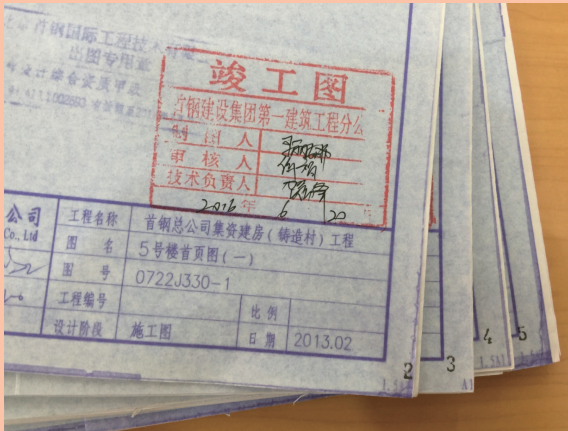 首钢国际工程技术
出图专用章
竣工图
首钢建设集团第一建筑工程分公
制图人
审核人
技术负责人
2016年 6 20
公司
Co., Ltd
工程名称 首钢总公司集资建房(铸造村)工程
图名 5号楼首页图(一)
图号 0722J330-1
工程编号 比例
设计阶段 施工图 日期 2013.02
2
3
4
5
A1